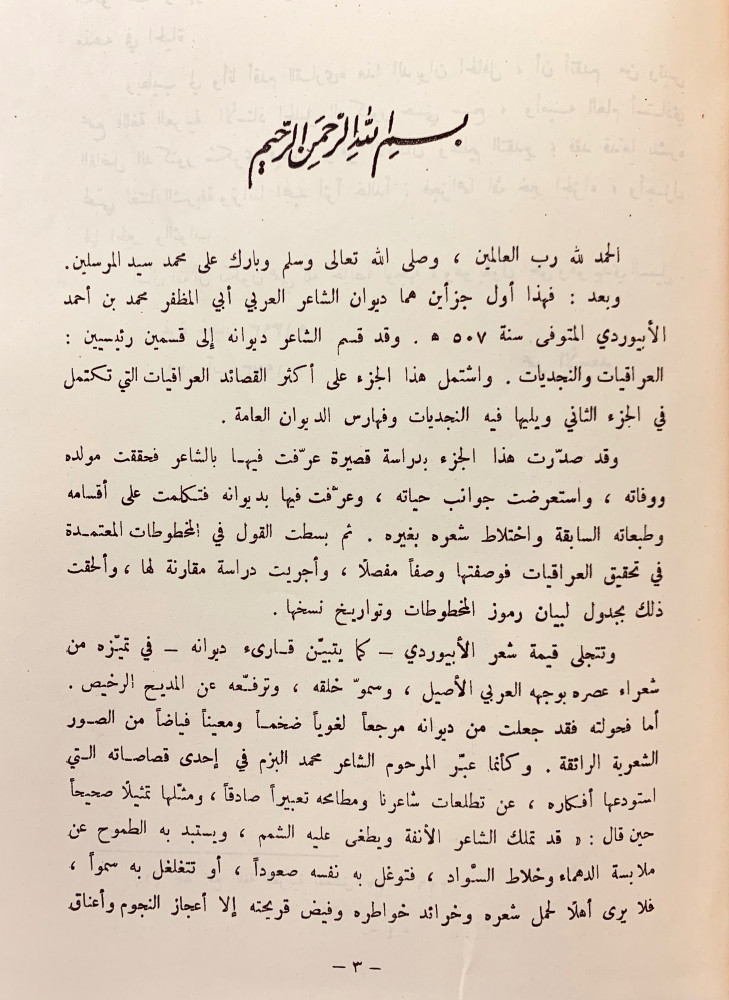 بسم الله الرحمن الرحيم
الحمد لله رب العالمين ، وصلى الله تعالى وسلم وبارك على محمد سيد المرسلين.
وبعد : فهذا أول جزأين هما ديوان الشاعر العربي أبي المظفر محمد بن أحمد
الأبيوردي المتوفى سنة ٥٠٧ ه . وقد قسم الشاعر ديوانه إلى قسمين رئيسيين :
العراقيات والنجديات . واشتمل هذا الجزء على أكثر القصائد العراقيات التي تكتمل
في الجزء الثاني ويليها فيه النجديات وفهارس الديوان العامة .
وقد صدّرت هذا الجزء بدراسة قصيرة عرّفت فيهـا بالشاعر فحققت مولده
ووفاته ، واستعرضت جوانب حياته ، وعرّفت فيها بديوانه فتكلمت على أقسامه
وطبعاته السابقة واختلاط شعره بغيره . ثم بسطت القول في المخطوطات المعتمـدة
في تحقيق العراقيات فوصفتها وصفاً مفصلًا ، وأجريت دراسة مقارنة لها ، وألحقت
ذلك بجدول لبيان رموز المخطوطات وتواريخ نسخها .
وتتجلى قيمة شعر الأبيوردي – كما يتبيّـن قـارىء ديوانه – في تميّزه من
شعراء عصره بوجهه العربي الأصيل ، وسموّ خلقه ، وترفّـعه عن المديح الرخيص .
أما فحولته فقد جعلت من ديوانه مرجعاً لغوياً ضخمـاً ومعيناً فياضاً من الصـور
الشعرية الرائقة . وكأنما عبّر المرحوم الشاعر محمد البزم في إحدى قصاصـاته الـتي
استودعها أفـكاره ، عن تطلعات شاعرنا ومطامحه تعبيراً صادقاً ، ومثّلها تمثيلًا صحيحاً
حين قال : « قد تملك الشاعر الأنفة ويطغى عليه الشمم ، ويستبد به الطموح عن
ملابسة الدهماء وخلاط السّواد ، فتوغل به نفسه صعوداً ، أو تتغلغل به سمواً ،
فلا يرى أهلًا لحمل شعره وخرائد خواطره وفيض قريحته إلا أعجاز النجوم وأعناق
– ٣ –